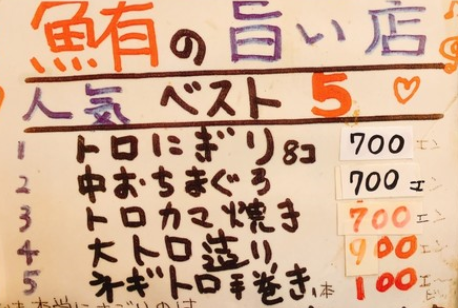 鮪の旨い店
人気 ベスト 5 ♡
1 トロにぎり 8コ 700 エン
2 中おちまぐろ 700 エン
3 トロカマ焼き 700 エン
4 大トロ造り 900 エン
5 ネギトロ手巻き 1本 100 エン